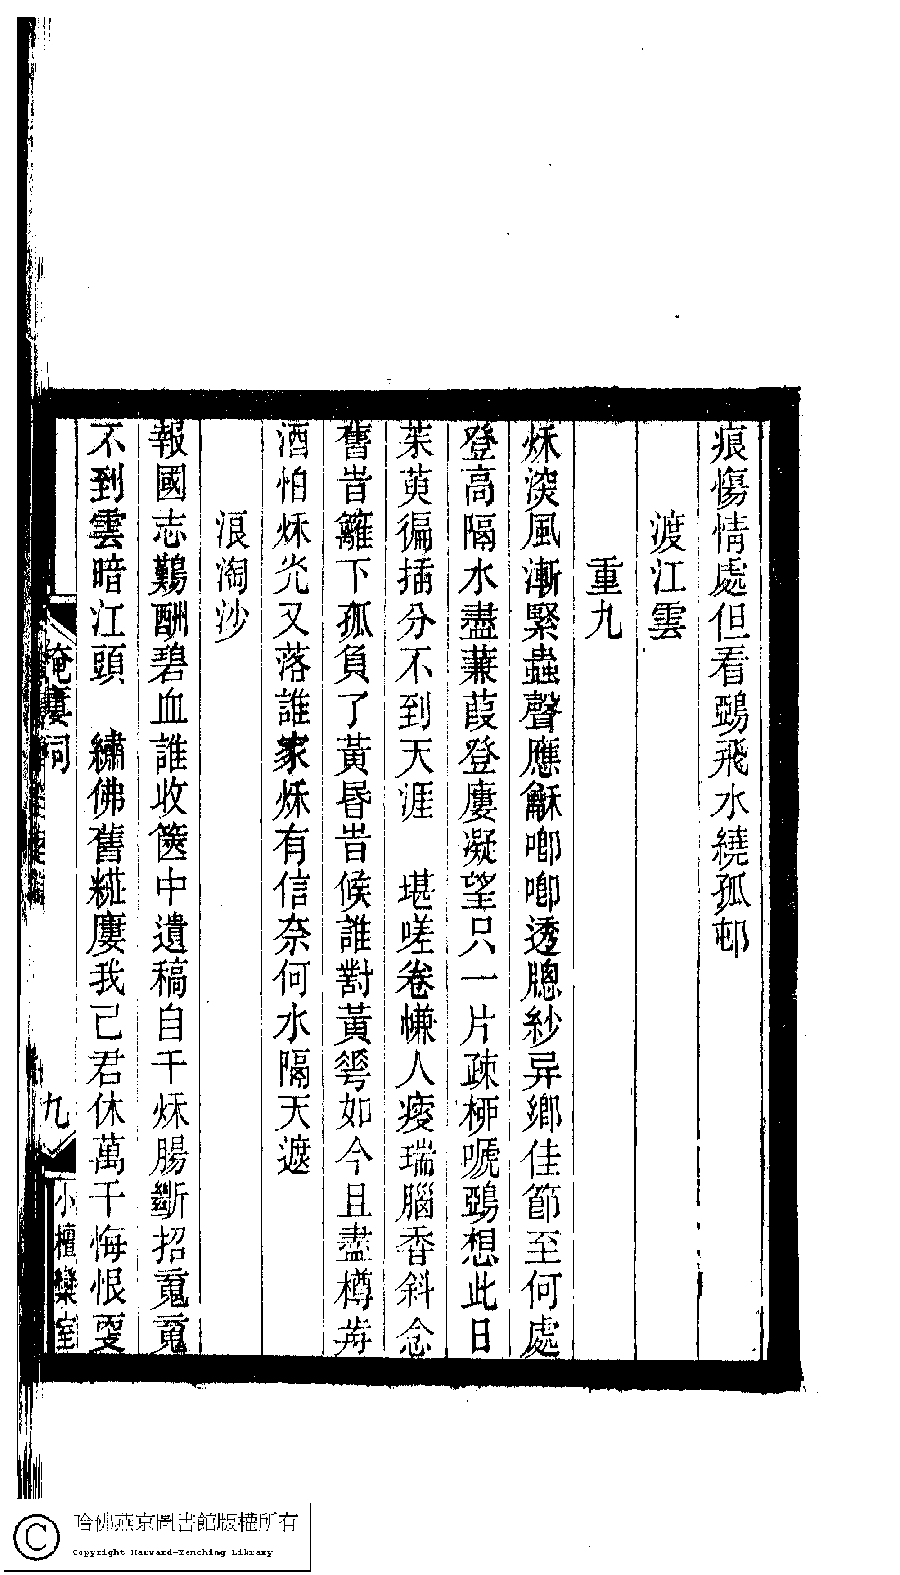 痕傷情處但看鵶飛水繞孤邨
渡江雲
重九
秌深風漸緊蟲聲應龢啷啷透牕紗异鄉佳節至何處
登高隔水盡蒹葭登廔凝望只一片疎桺嗁鵶想此日
茱萸徧插分不到天涯 堪嗟卷慊人瘦瑞腦香斜念
舊旹籬下孤負了黃昏旹候誰對黃蕐如今且盡樽歬
酒怕秌光又落誰家秌有信奈何水隔天遮
浪淘沙
報國志難酬碧血誰收篋中遺稿自千秌腸斷招䰟䰟
不到雲暗江頭 繡佛舊糚廔我已君休萬千悔恨㪅
九
小檀欒室
哈佛燕京圖書館版權所有
Copyright Harvard-Yenching Library